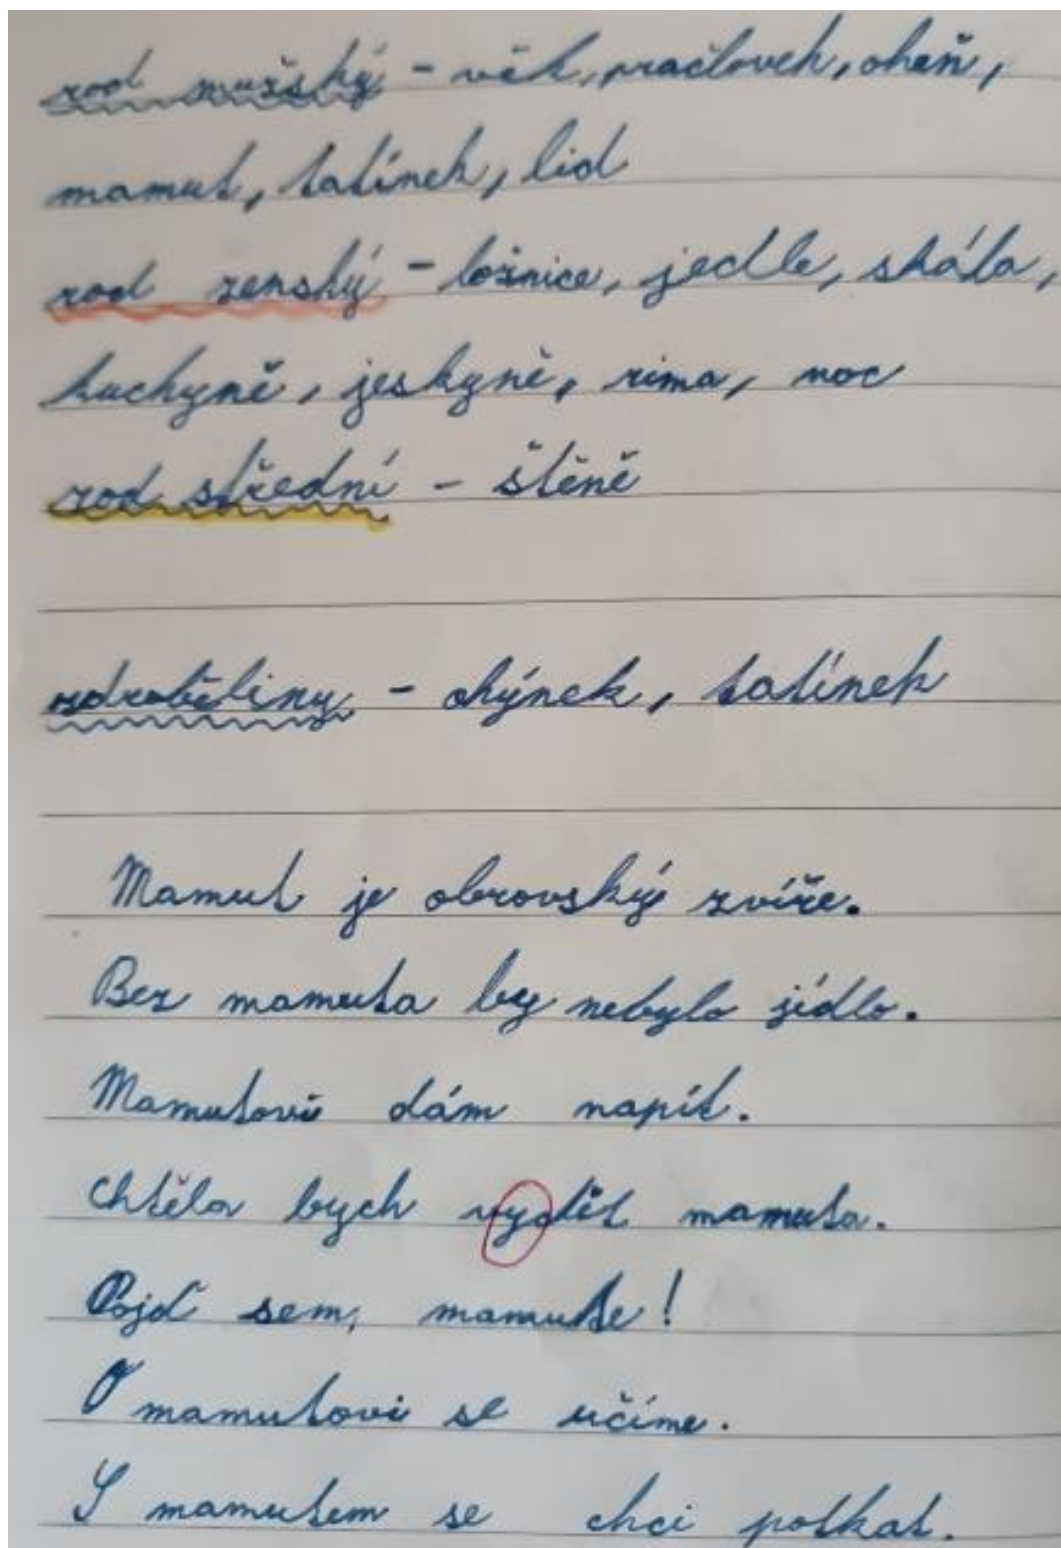 rod mužský - věk, pračlověk, oheň,
mamut, tatínek, lid
rod ženský - ložnice, jedle, skála,
kuchyně, jeskyně, zima, noc
rod střední - štěně
zdrobněliny - ohýnek, tatínek
Mamut je obrovský zvíře.
Bez mamuta by nebylo jídlo.
Mamutovi dám napít.
Chtěla bych vydět mamuta.
Pojď sem, mamute!
O mamutovi se učíme.
S mamutem se chci potkat.